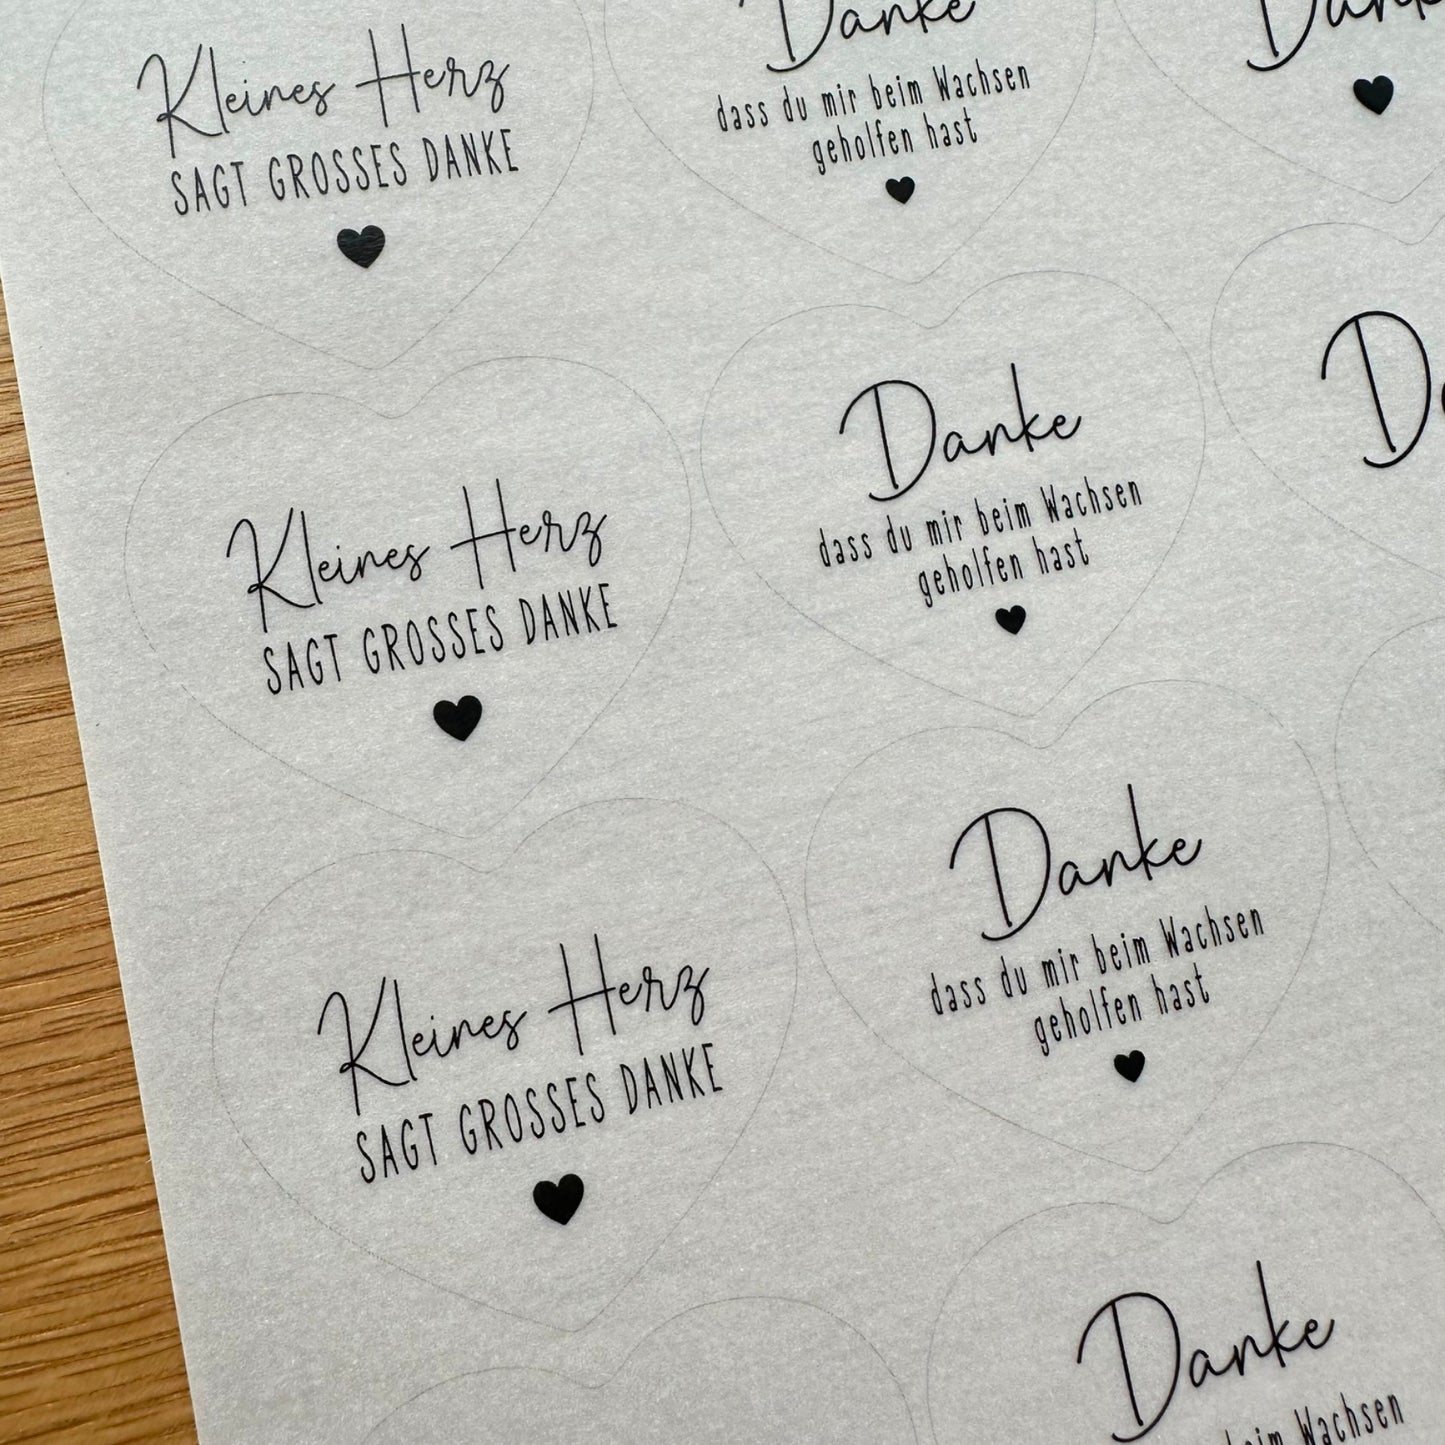 Kleines Herz
SAGT GROSSES DANKE
Danke
dass du mir beim Wachsen
geholfen hast
Kleines Herz
SAGT GROSSES DANKE
Danke
dass du mir beim Wachsen
geholfen hast
Kleines Herz
SAGT GROSSES DANKE
Danke
dass du mir beim Wachsen
geholfen hast
Danke
beim Wachsen